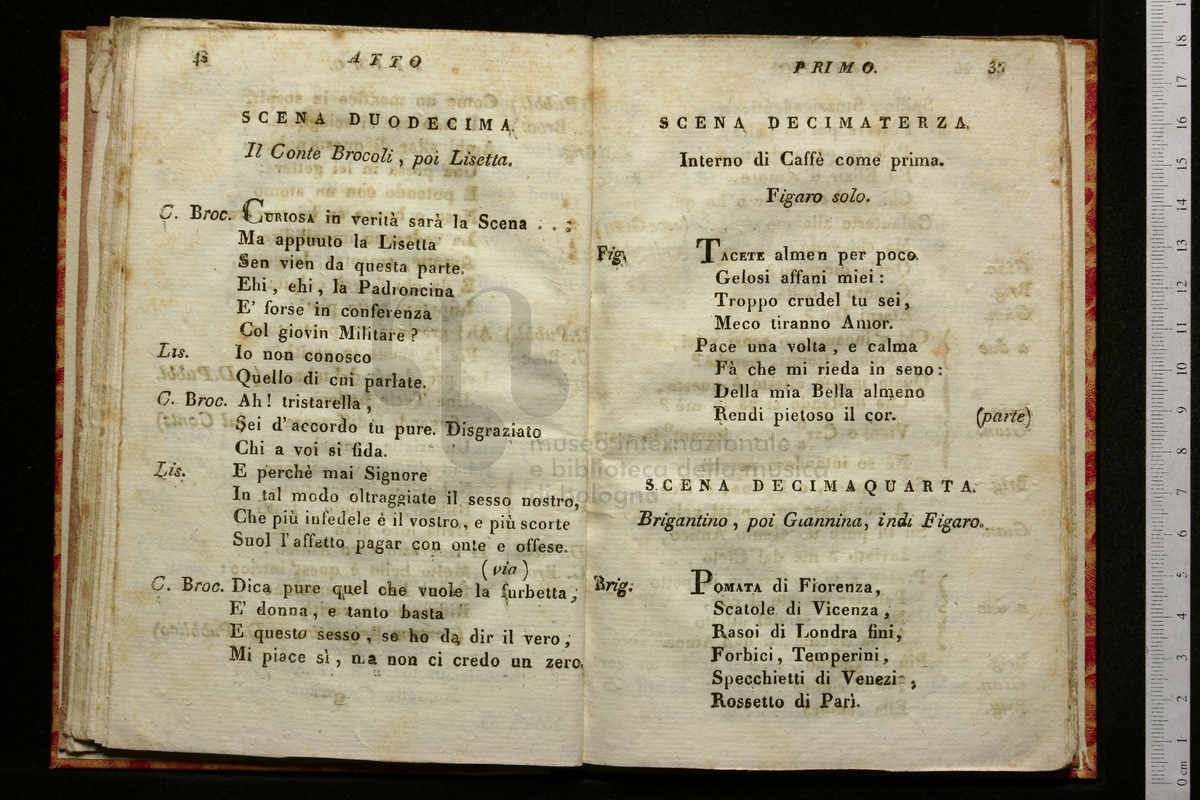 ATTO
SCENA DUODECIMA.
Il Conte Brocoli, poi Lisetta.
C. Broc. CURIOSA in verità sarà la Scena . . .
Ma appuuto la Lisetta
Sen vien da questa parte.
Ehi, ehi, la Padroncina
E' forse in conferenza
Col giovin Militare?
Lis. Io non conosco
Quello di cui parlate.
C. Broc. Ah! tristarella,
Sei d'accordo tu pure. Disgraziato
Chi a voi si fida.
Lis. E perchè mai Signore
In tal modo oltraggiate il sesso nostro,
Che più infedele è il vostro, e più scorte
Suol l'affetto pagar con onte e offese.
(via)
C. Broc. Dica pure quel che vuole la furbetta;
E' donna, e tanto basta
E questo sesso, se ho da dir il vero,
Mi piace sì, ma non ci credo un zero.
PRIMO. 35
SCENA DECIMATERZA.
Interno di Caffè come prima.
Figaro solo.
Fig. TACETE almen per poco
Gelosi affani miei:
Troppo crudel tu sei,
Meco tiranno Amor.
Pace una volta, e calma
Fà che mi rieda in seno:
Della mia Bella almeno
Rendi pietoso il cor. (parte)
SCENA DECIMAQUARTA.
Brigantino, poi Giannina, indi Figaro.
Brig. POMATA di Fiorenza,
Scatole di Vicenza,
Rasoi di Londra fini,
Forbici, Temperini,
Specchietti di Venezia,
Rossetto di Parì.
museo internazionale
e biblioteca della musica
di bologna